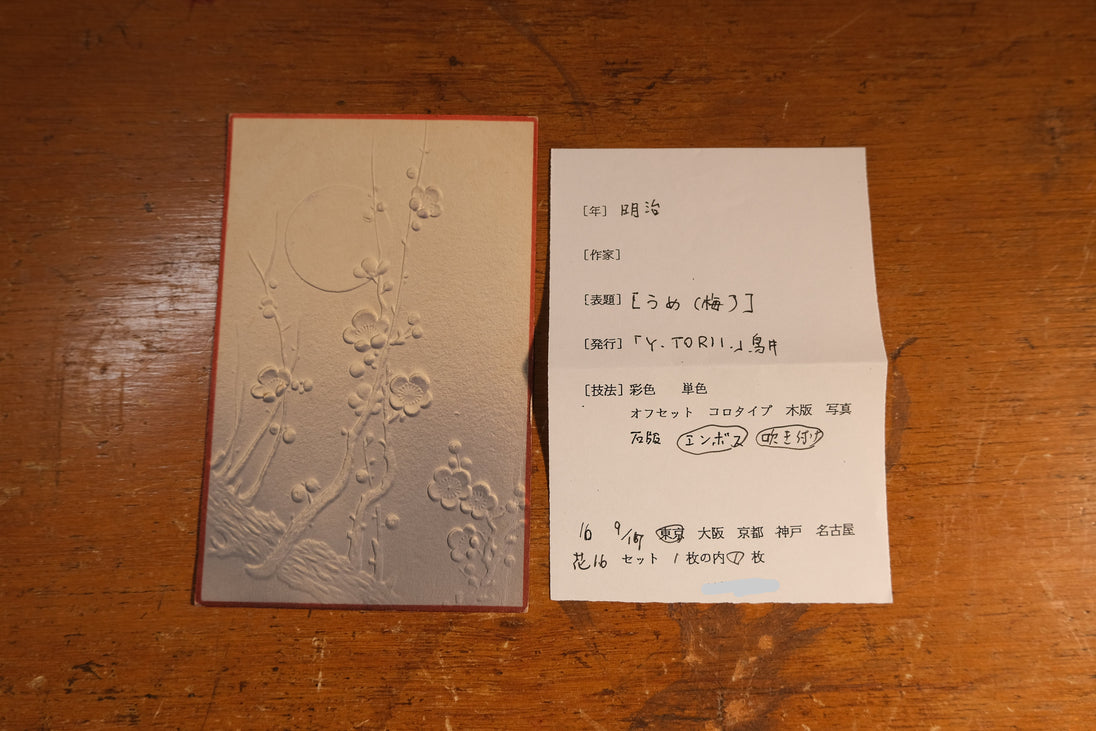 [年] 明治
[作家]
[表題] [うめ(梅)]
[発行] 「Y. TORII.」鳥井
[技法] 彩色 単色
オフセット コロタイプ 木版 写真
石版 エンボス 吹き付け
16 東京 大阪 京都 神戸 名古屋
花16 セット 1枚の内① 枚